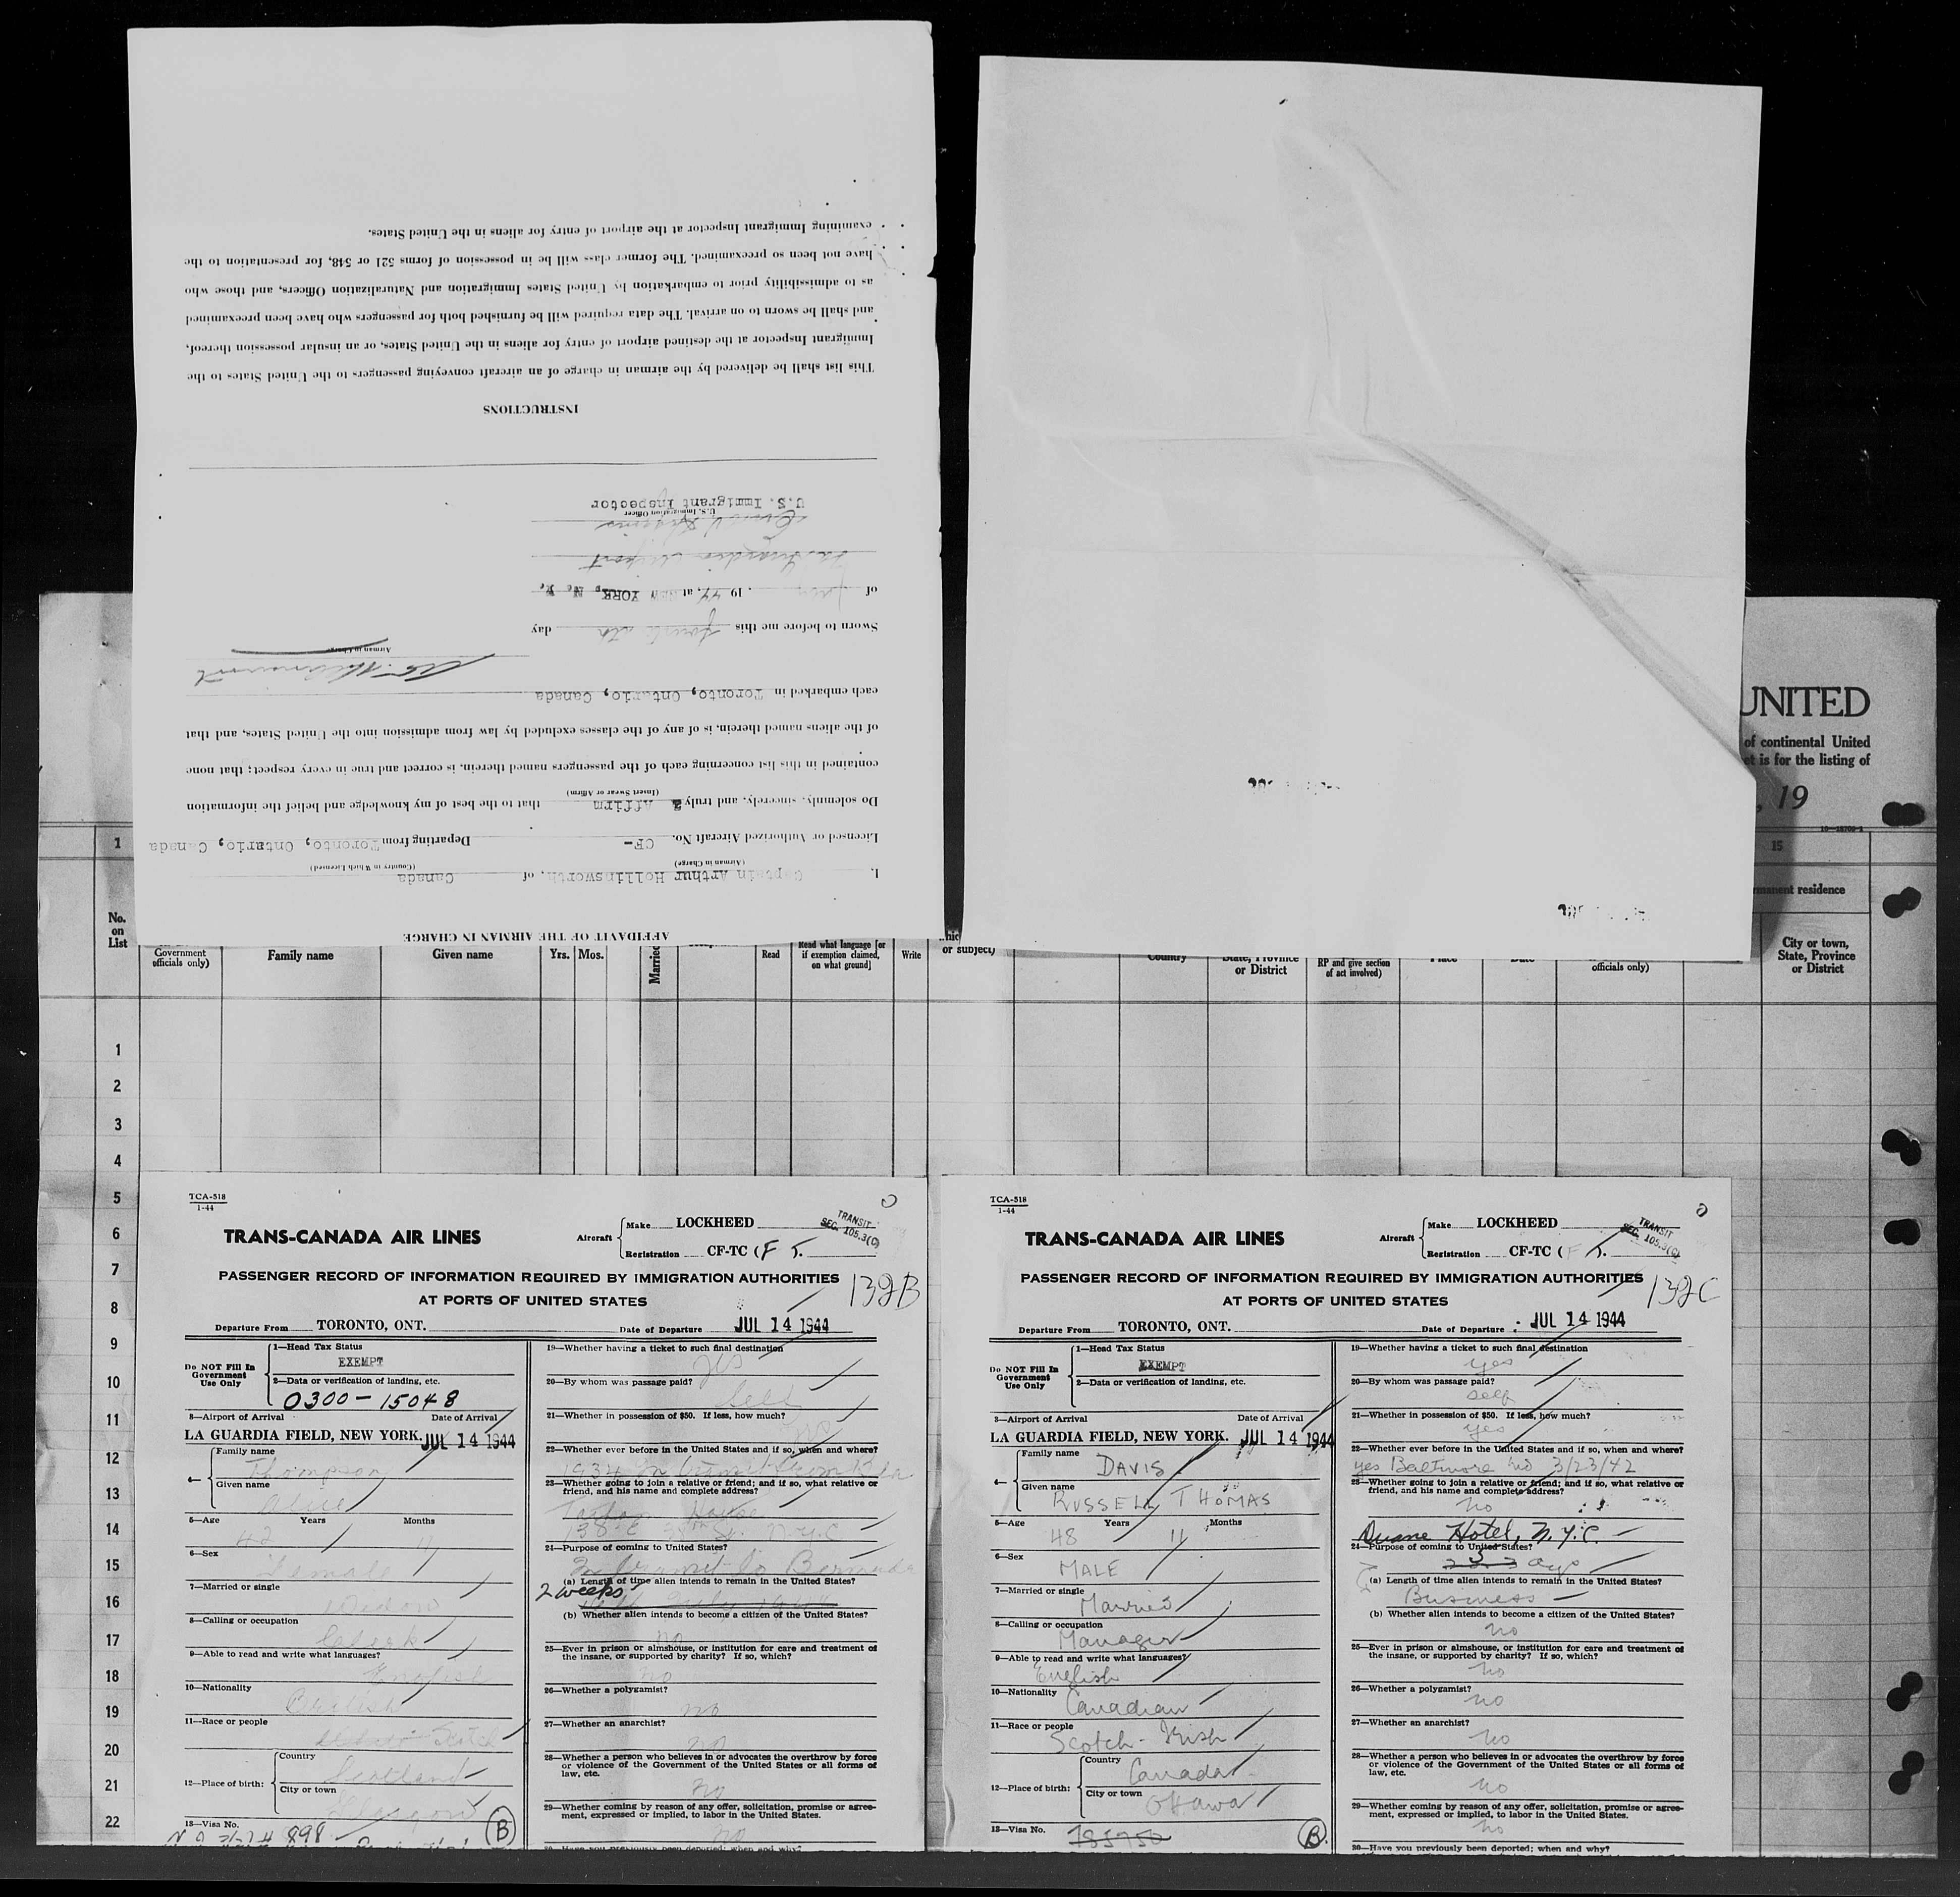 AFFIDAVIT OF THE AIRMAN IN CHARGE
I, Captain Arthur Hollinsworth, of Canada
(Airman in Charge) (Country in Which Licensed)
Licensed or Authorized Aircraft No. CF- Departing from Toronto, Ontario, Canada
Do solemnly, sincerely, and truly Affirm that to the best of my knowledge and belief the information
(Insert Swear or Affirm)
contained in this list concerning each of the passengers named therein, is correct and true in every respect; that none
of the aliens named therein, is of any of the classes excluded by law from admission into the United States, and that
each embarked in Toronto, Ontario, Canada
Airman in Charge
Sworn to before me this day
of , 19 44, at NEW YORK, N. Y.
La Guardia Airport
U.S. Immigration Officer
U.S. Immigrant Inspector
INSTRUCTIONS
This list shall be delivered by the airman in charge of an aircraft conveying passengers to the United States to the
Immigrant Inspector at the destined airport of entry for aliens in the United States, or an insular possession thereof,
and shall be sworn to on arrival. The data required will be furnished both for passengers who have been preexamined
as to admissibility prior to embarkation by United States Immigration and Naturalization Officers, and those who
have not been so preexamined. The former class will be in possession of forms 521 or 548, for presentation to the
examining Immigrant Inspector at the airport of entry for aliens in the United States.
UNITED
of continental United
et is for the listing of
, 19
1
15
manent residence
No.
on
List
Government
officials only)
Family name
Given name
Yrs.
Mos.
Married
Read
Read what language [or
if exemption claimed,
on what ground]
Write
or subject)
Country
State, Province
or District
RP and give section
of act involved)
Place
Date
officials only)
City or town,
State, Province
or District
1
2
3
4
5
6
7
8
9
10
11
12
13
14
15
16
17
18
19
20
21
22
TCA-518
1-44
TRANS-CANADA AIR LINES
Aircraft
Make LOCKHEED
Registration CF-TC (F T.
TRANSIT
SEC. 105.3(C)
PASSENGER RECORD OF INFORMATION REQUIRED BY IMMIGRATION AUTHORITIES
AT PORTS OF UNITED STATES
132B
Departure From TORONTO, ONT. Date of Departure JUL 14 1944
Do NOT Fill In
Government
Use Only
1—Head Tax Status
EXEMPT
2—Data or verification of landing, etc.
0300-15048
3—Airport of Arrival Date of Arrival
LA GUARDIA FIELD, NEW YORK. JUL 14 1944
4—
Family name
Thompson
Given name
Alice
5—Age Years Months
42 11
6—Sex
Female
7—Married or single
Widow
8—Calling or occupation
Clerk
9—Able to read and write what languages?
English
10—Nationality
British
11—Race or people
Scotch
12—Place of birth:
Country
Scotland
City or town
Glasgow
13—Visa No.
898
B
19—Whether having a ticket to such final destination
yes
20—By whom was passage paid?
Self
21—Whether in possession of $50. If less, how much?
22—Whether ever before in the United States and if so, when and where?
1934 in transit from Bda
23—Whether going to join a relative or friend; and if so, what relative or
friend, and his name and complete address?
138 E 38th St. N.Y.C
24—Purpose of coming to United States?
In transit to Bermuda
(a) Length of time alien intends to remain in the United States?
2 weeks
(b) Whether alien intends to become a citizen of the United States?
no
25—Ever in prison or almshouse, or institution for care and treatment of
the insane, or supported by charity? If so, which?
no
26—Whether a polygamist?
no
27—Whether an anarchist?
no
28—Whether a person who believes in or advocates the overthrow by force
or violence of the Government of the United States or all forms of
law, etc.
no
29—Whether coming by reason of any offer, solicitation, promise or agree-
ment, expressed or implied, to labor in the United States.
no
30—Have you previously been deported; when and why?
TCA-518
1-44
TRANS-CANADA AIR LINES
Aircraft
Make LOCKHEED
Registration CF-TC (F T.
TRANSIT
SEC. 105.3(C)
PASSENGER RECORD OF INFORMATION REQUIRED BY IMMIGRATION AUTHORITIES
AT PORTS OF UNITED STATES
132C
Departure From TORONTO, ONT. Date of Departure JUL 14 1944
Do NOT Fill In
Government
Use Only
1—Head Tax Status
EXEMPT
2—Data or verification of landing, etc.
3—Airport of Arrival Date of Arrival
LA GUARDIA FIELD, NEW YORK. JUL 14 1944
4—
Family name
DAVIS
Given name
RUSSELL THOMAS
5—Age Years Months
48 11
6—Sex
MALE
7—Married or single
Married
8—Calling or occupation
Manager
9—Able to read and write what languages?
English
10—Nationality
Canadian
11—Race or people
Scotch-Irish
12—Place of birth:
Country
Canada
City or town
Ottawa
13—Visa No.
185750
B.
19—Whether having a ticket to such final destination
yes
20—By whom was passage paid?
self
21—Whether in possession of $50. If less, how much?
yes
22—Whether ever before in the United States and if so, when and where?
yes Baltimore Md 3/23/42
23—Whether going to join a relative or friend; and if so, what relative or
friend, and his name and complete address?
no
Duane Hotel, N.Y.C.
24—Purpose of coming to United States?
(a) Length of time alien intends to remain in the United States?
Business
(b) Whether alien intends to become a citizen of the United States?
no
25—Ever in prison or almshouse, or institution for care and treatment of
the insane, or supported by charity? If so, which?
no
26—Whether a polygamist?
no
27—Whether an anarchist?
no
28—Whether a person who believes in or advocates the overthrow by force
or violence of the Government of the United States or all forms of
law, etc.
no
29—Whether coming by reason of any offer, solicitation, promise or agree-
ment, expressed or implied, to labor in the United States.
no
30—Have you previously been deported; when and why?